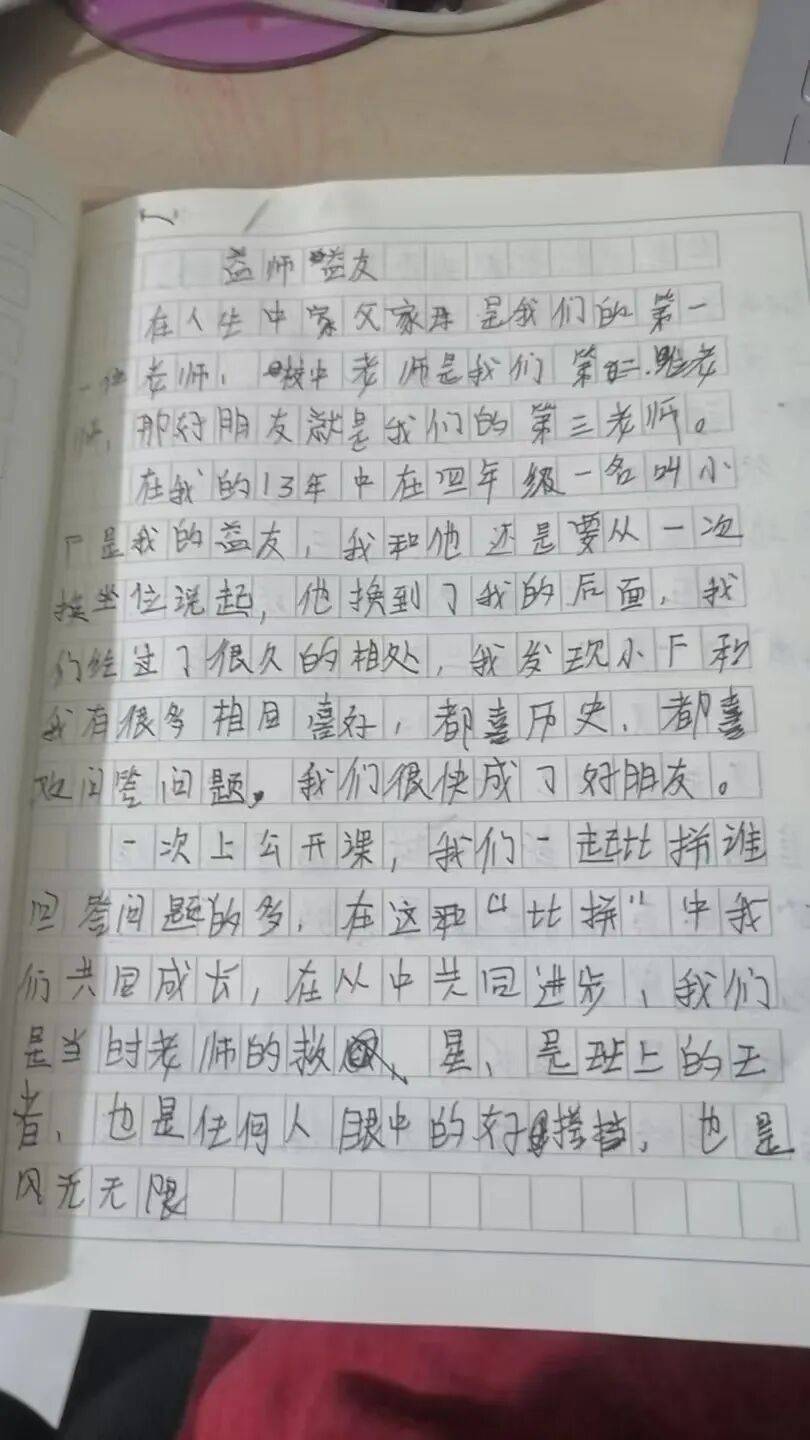 益师益友
在人生中家父家母是我们的第一
一位老师,校中老师是我们第二位老
师,那好朋友就是我们的第三老师。
在我的13年中在四年级一名叫小
F是我的益友,我和他还是要从一次
换坐位说起,他换到了我的后面,我
们经过了很久的相处,我发现小F和
我有很多相同喜好,都喜历史,都喜
欢回答问题。我们很快成了好朋友。
一次上公开课,我们一起比拼谁
回答问题的多,在这种“比拼”中我
们共同成长,在从中共同进步,我们
是当时老师的救星,是班上的王
者,也是任何人眼中的好搭档,也是
风光无限